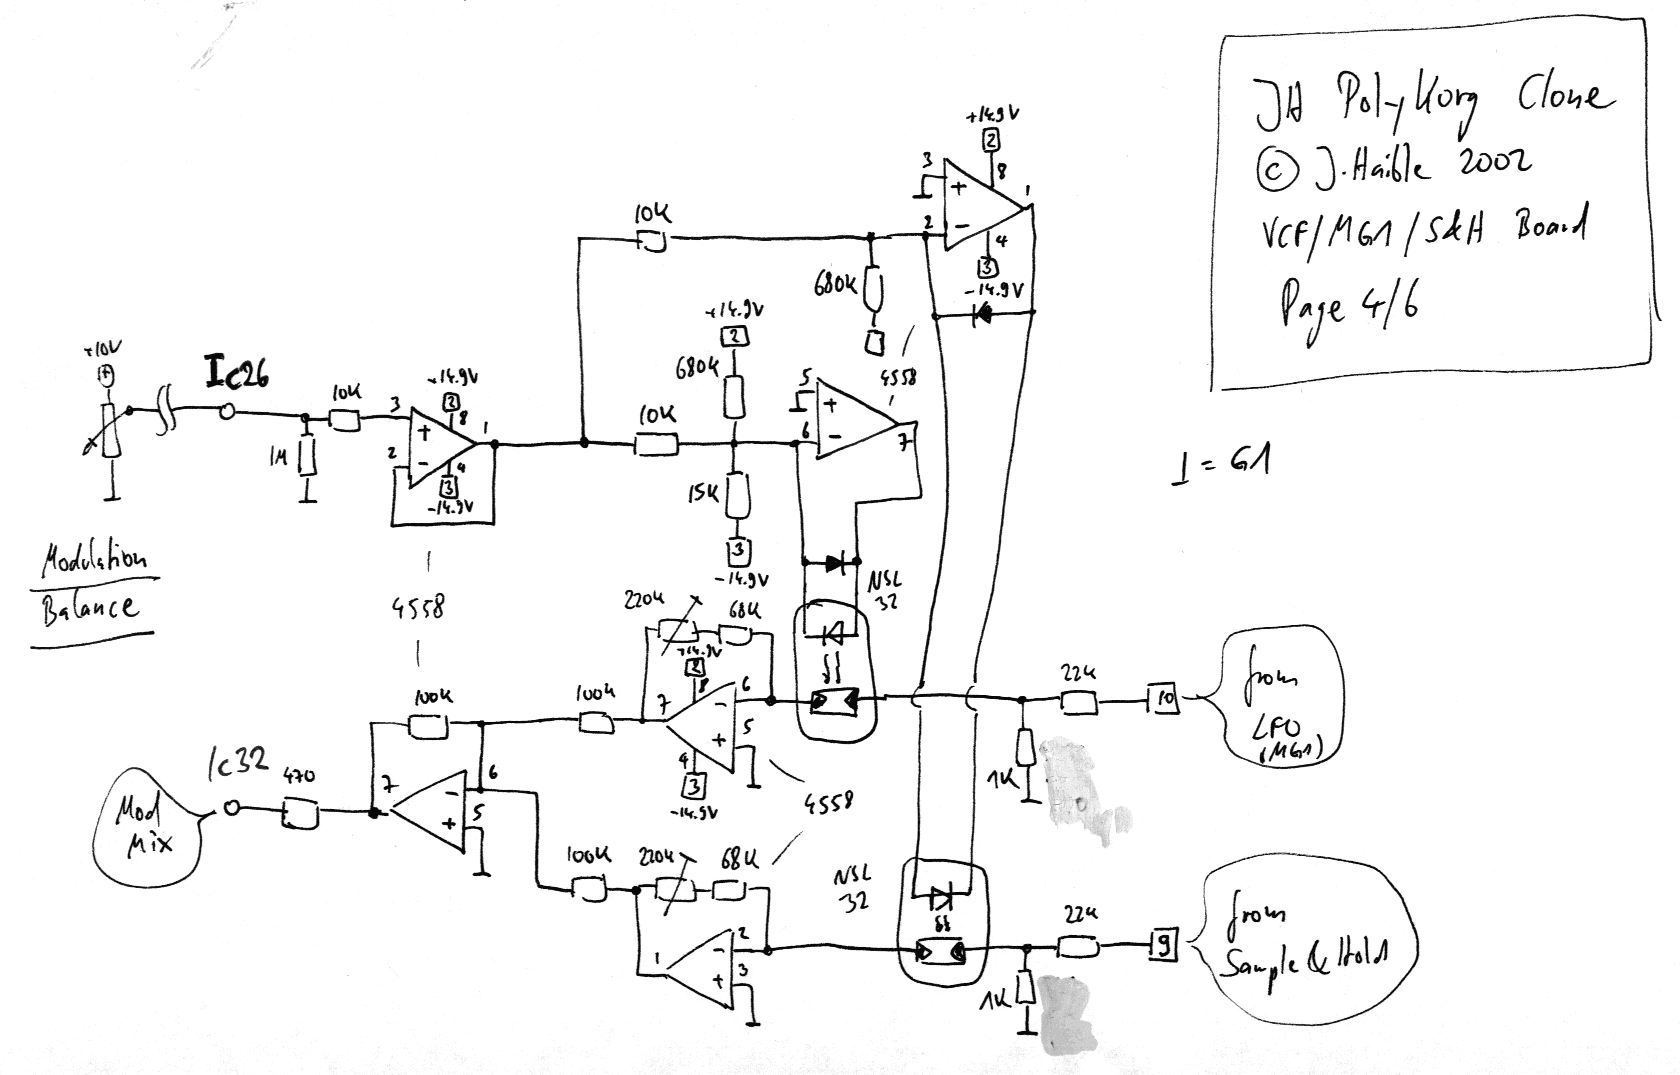 JH PolyKorg Clone
© J.Haible 2002
VCF/MG1/S&H Board
Page 4/6
⊥ = G1
+14.9V
2
3
8
+
1
10K
2
-
4
3
-14.9V
680K
+14.9V
2
4558
680K
+10V
+
Ic26
10K
+14.9V
2
3
8
+
1
1M
2
-
4
3
-14.9V
10K
5
+
6
-
7
15K
3
-14.9V
Modulation
Balance
4558
NSL
32
220K
68K
+14.9V
2
8
6
-
7
+
5
4
3
-14.9V
100K
100K
22K
10
from
LFO
(MG1)
1K
4558
Ic32
470
7
6
-
5
+
Mod
Mix
100K
220K
68K
NSL
32
22K
9
from
Sample & Hold
2
-
1
3
+
1K